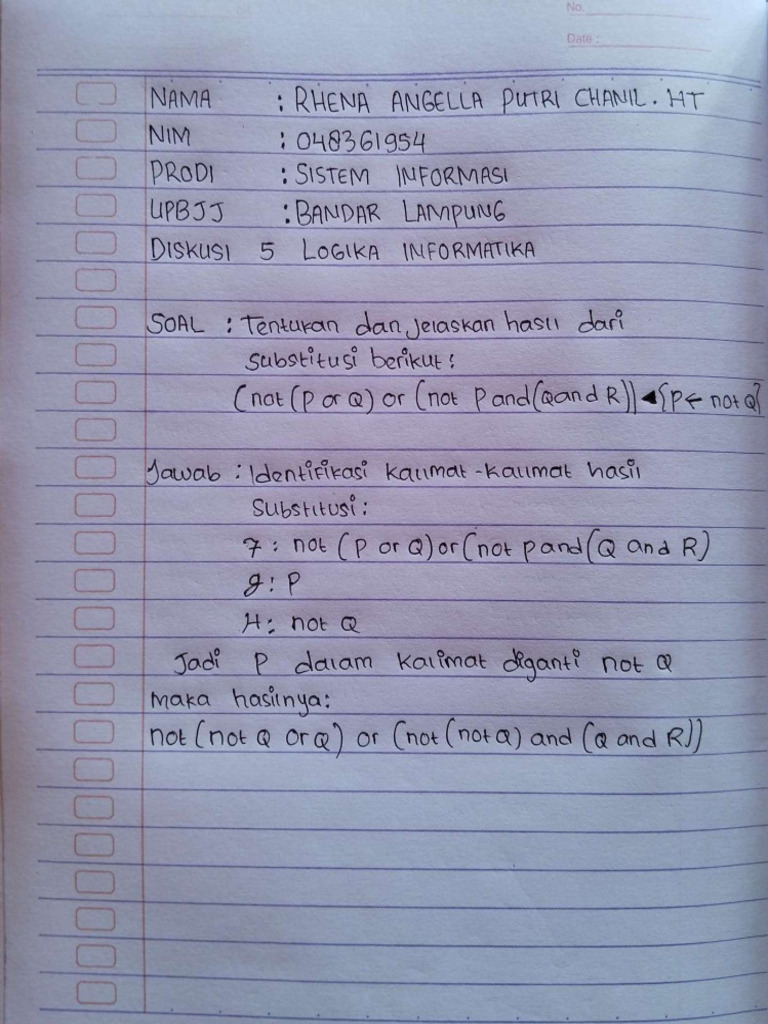 No.
Date :
NAMA : RHENA ANGELLA PUTRI CHANIL. HT
NIM : 048361954
PRODI : SISTEM INFORMASI
UPBJJ : BANDAR LAMPUNG
DISKUSI 5 LOGIKA INFORMATIKA
SOAL : Tentukan dan jelaskan hasil dari
substitusi berikut :
(not (P or Q) or (not P and (Q and R)) ◄ {P ← not Q}
Jawab : Identifikasi kalimat-kalimat hasil
Substitusi :
F : not (P or Q) or (not p and (Q and R)
g : P
H : not Q
Jadi P dalam kalimat diganti not Q
maka hasilnya:
not (not Q or Q) or (not (not Q) and (Q and R))